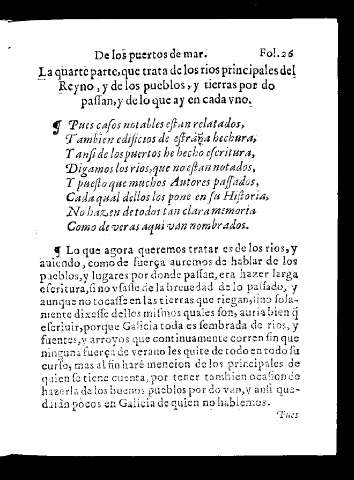 De los puertos de mar. Fol. 26
La quarte parte, que trata de los rios principales del
Reyno, y de los pueblos, y tierras por do
passan, y de lo que ay en cada vno.
¶ Pues casos notables estan relatados,
Tambien edificios de estraña hechura,
Y ansi de los puertos he hecho escritura,
Digamos los rios, que no estan notados,
Y puesto que muchos Autores passados,
Cada qual dellos los pone en su Historia,
No hazen de todos tan clara memoria
Como de veras aqui van nombrados.
¶ Lo que agora queremos tratar es de los rios, y
auiendo, como de fuerça auremos de hablar de los
pueblos, y lugares por donde passan, era hazer larga
escritura, si no vsasse de la breuedad de lo passado, y
aunque no tocasse en las tierras que riegan, sino sola-
mente dixesse dellos mismos quales son, auria bien q̃
escriuir, porque Galicia toda es sembrada de rios, y
fuentes, y arroyos que continuamente corren sin que
ninguna fuerça de verano les quite de todo en todo su
curso, mas al fin haré mencion de los principales de
quien se tiene cuenta, por tener tambien ocasion de
hazerla de los buenos pueblos por do van, y ansi que-
darán pocos en Galicia de quien no hablemos.
Pues